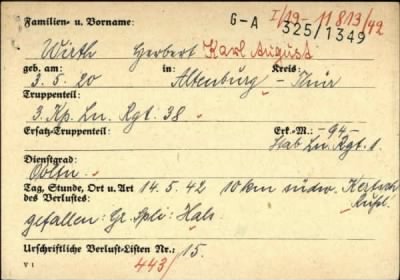 Familien- u. Vorname: G-A I/19-11813/42
325/1349
Wirth Herbert Karl August
geb. am: in: Kreis:
3.5.20 Altenburg - Thür
Truppenteil:
3. Kp. Ln. Rgt. 38
Ersatz-Truppenteil: Erk.-M.: -94-
Hab Ln. Rgt. 1.
Dienstgrad
Obltn.
Tag, Stunde, Ort u. Art 14.5.42 10 km südw. Kertsch
des Verlustes: Rußl.
gefallen: Gr. Spli: Hals
Urschriftliche Verlust-Listen Nr.: 15.
443/
V 1